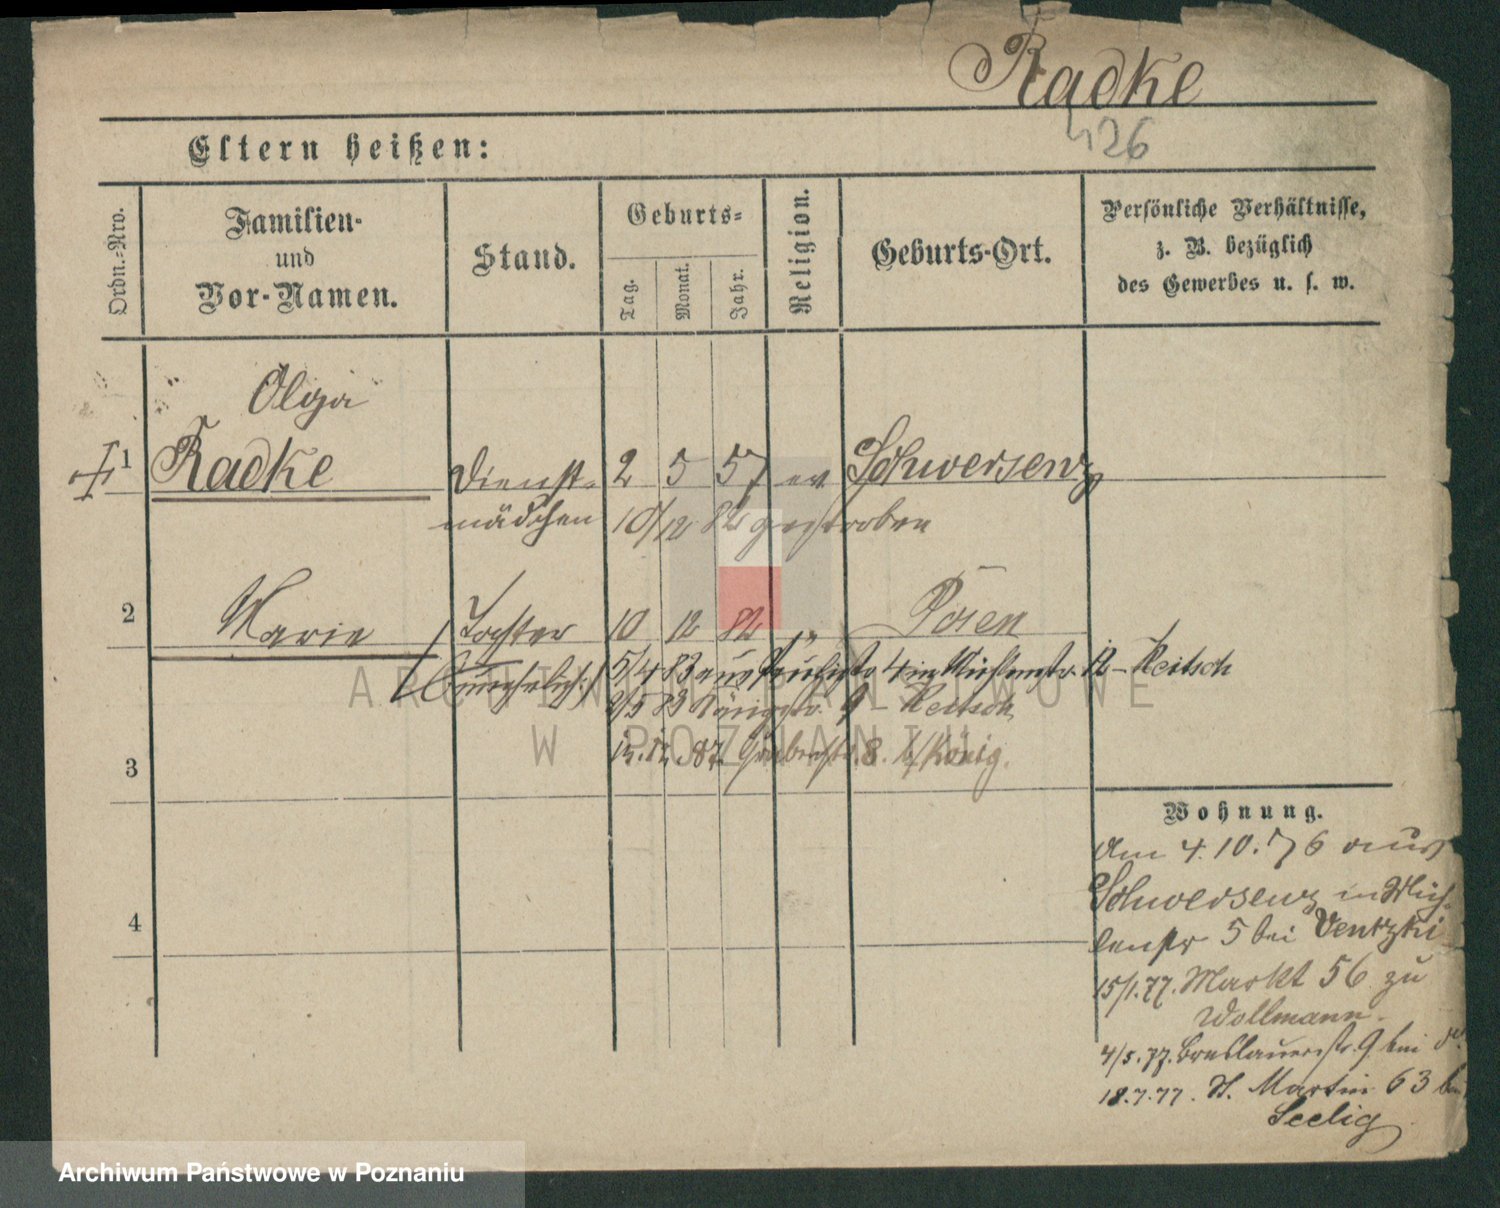 Radke
426
Eltern heißen:
Ordn.-Nro.
Familien-
und
Vor-Namen.
Stand.
Geburts-
Tag.
Monat.
Jahr.
Religion.
Geburts-Ort.
Persönliche Verhältnisse,
z. B. bezüglich
des Gewerbes u. s. w.
Olga
1 Radke Dienst- 2 5 57 ev Schwersenz
mädchen 10/12 82 gestorben
2 Marie Tochter 10 12 82 " Posen
(unehelich) 5/4 83 aus 4 in Mühlenstr. 12 - Reitsch
2/5 83 9 Reitsch
3
15.12.87. Grabenstr. 8. b/König.
Wohnung.
Am 4.10.76 aus
Schwersenz in Müh-
lenstr 5 bei Ventzki
15/1.77. Markt 56 zu
Wollmann.
4
4/5.77. Breslauerstr. 9 bei
18.7.77. St. Martin 63 bei
Seelig
ARCHIWUM PAŃSTWOWE
W POZNANIU
Archiwum Państwowe w Poznaniu